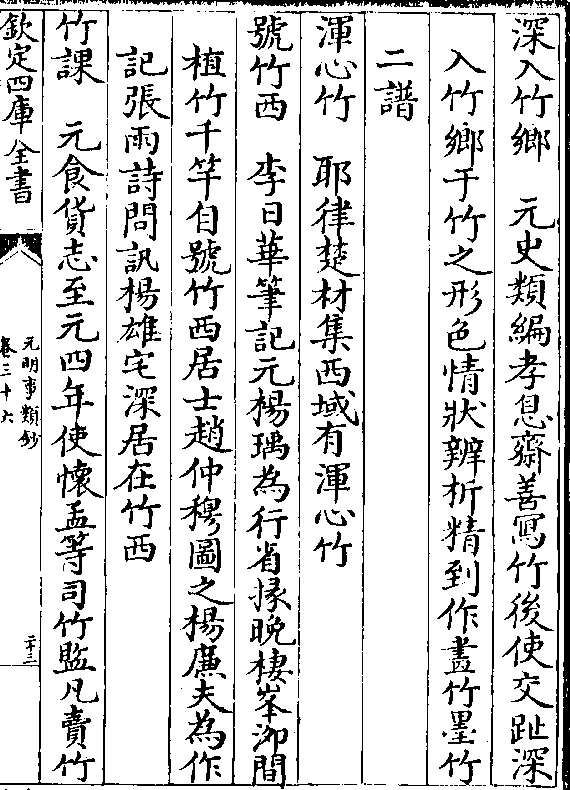 深入竹鄉　元史類編李息齋善寫竹後使交趾深
入竹鄉于竹之形色情狀辨析精到作畫竹墨竹
二譜
渾心竹　耶律楚材集西域有渾心竹
號竹西　李日華筆記元楊瑀為行省掾晚棲峯泖間
植竹千竿自號竹西居士趙仲穆圖之楊廉夫為作
記張雨詩問訊楊雄宅深居在竹西
竹課　元食貨志至元四年使懷孟等司竹監凡賣竹
欽定四庫全書
元明事類鈔
卷三十六
二十三